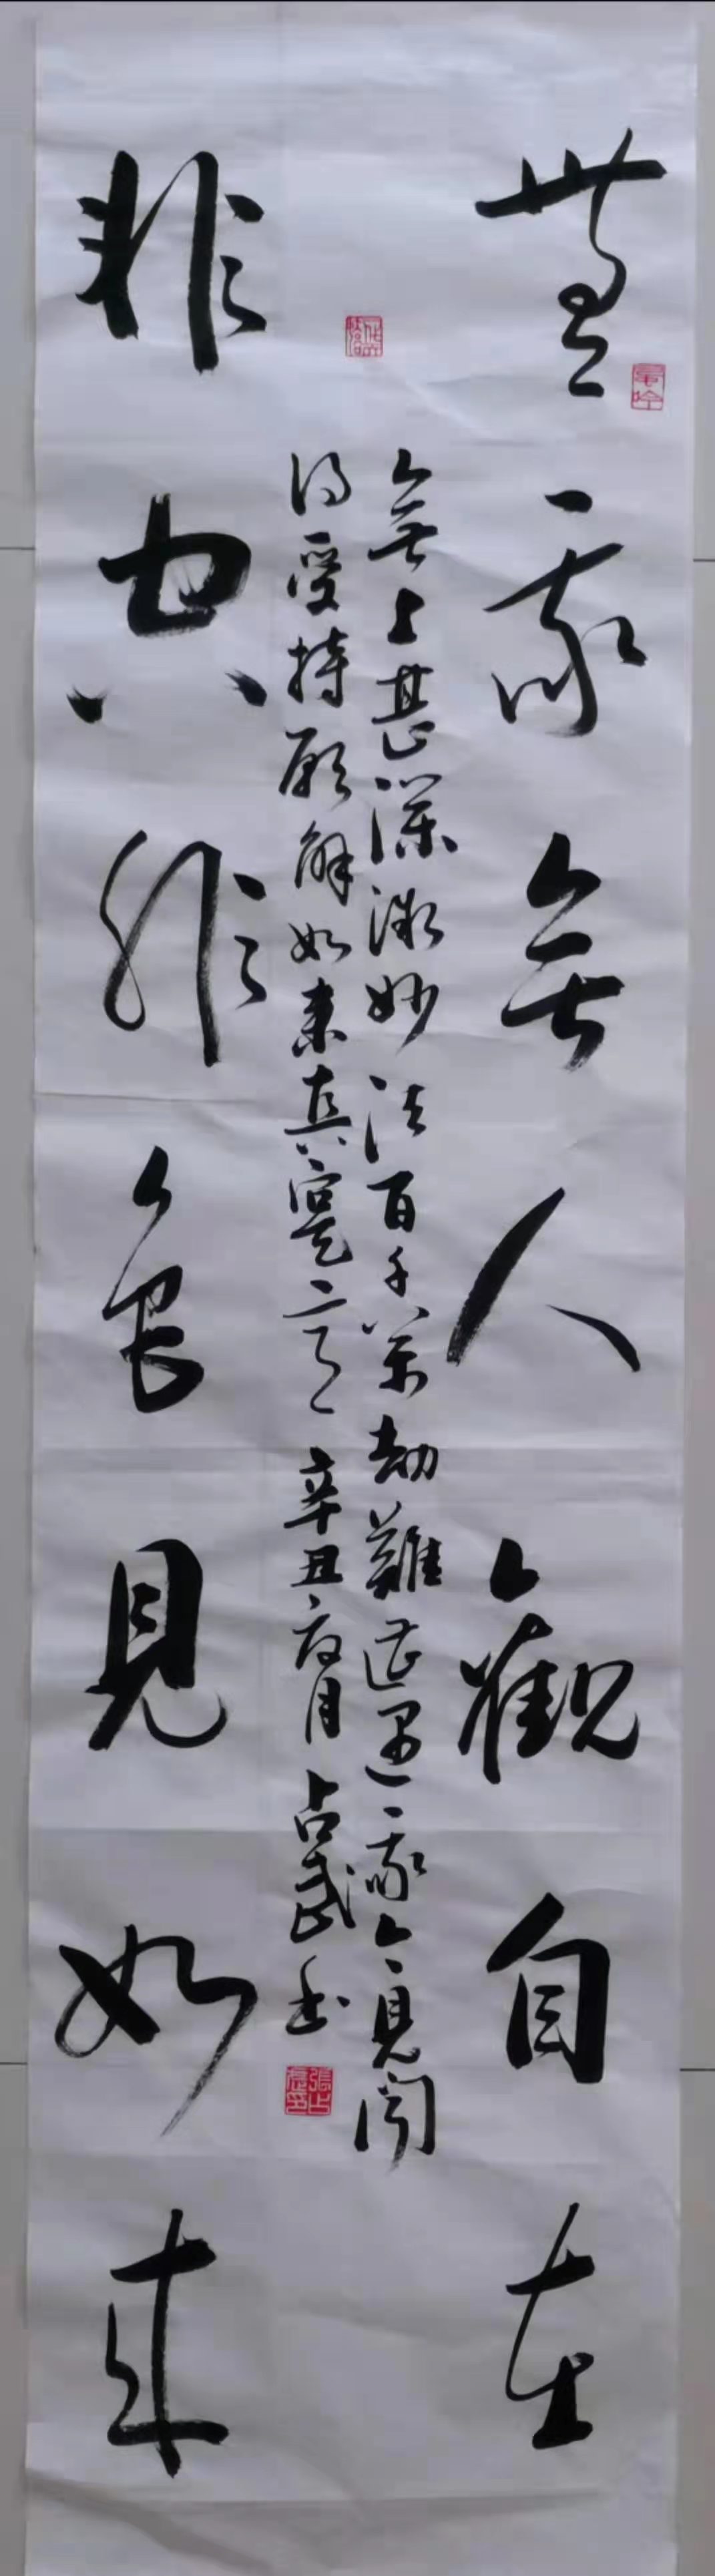 無我無人觀自在
無上甚深微妙法百千萬劫難遭遇我今見聞
得受持願解如來真實意 辛丑 月 占武書
非空非色見如來
張占武印